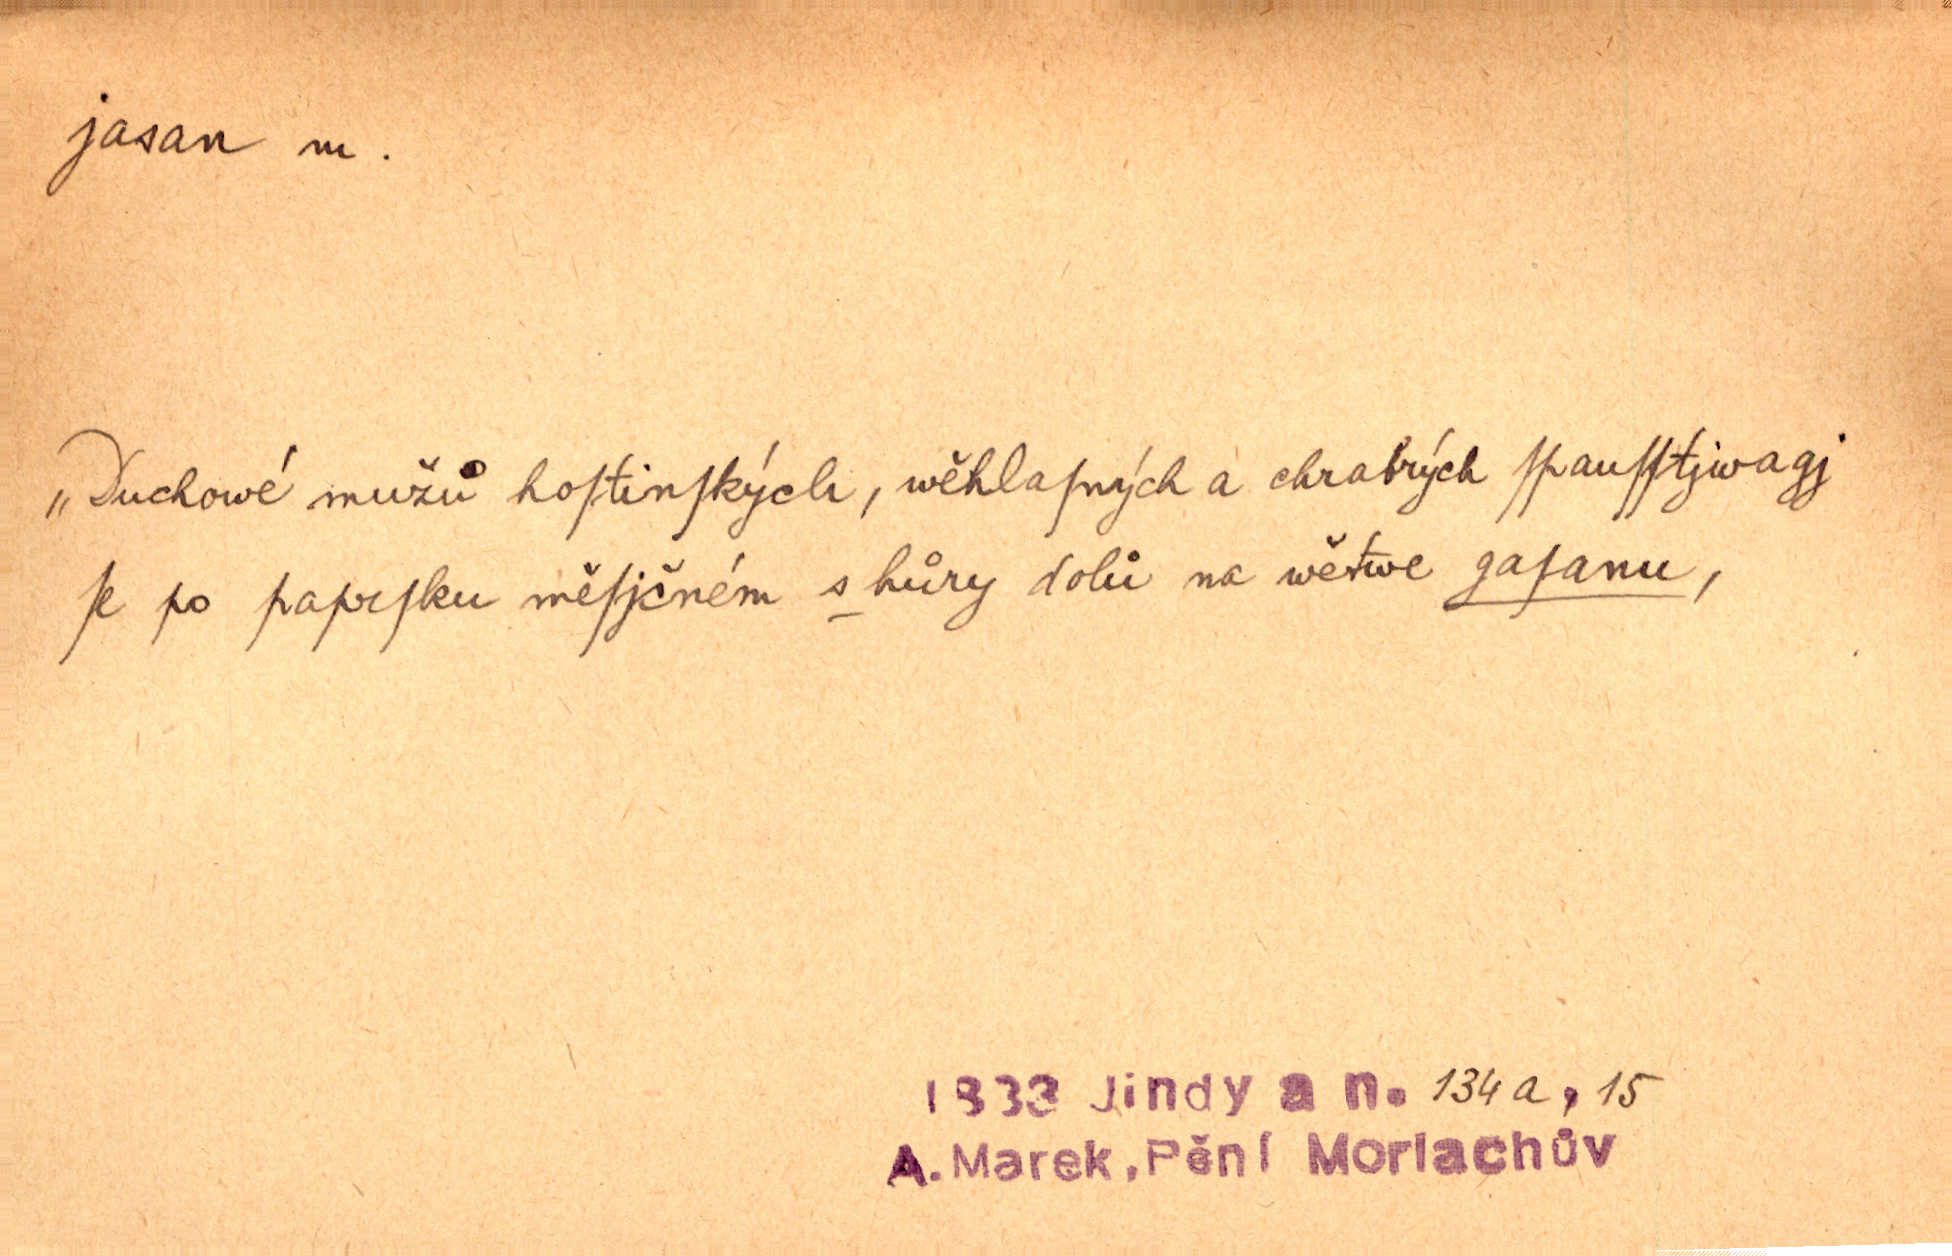 jasan m.
„Duchowé mužů hoſtinſkých, wěhlaſných a chrabrých ſpauſſtjwagj
ſe po paprſku měſjčném s hůry dolů na wětwe gaſanu,
1833 Jindy a n. 134a, 15
A. Marek, Pění Morlachův